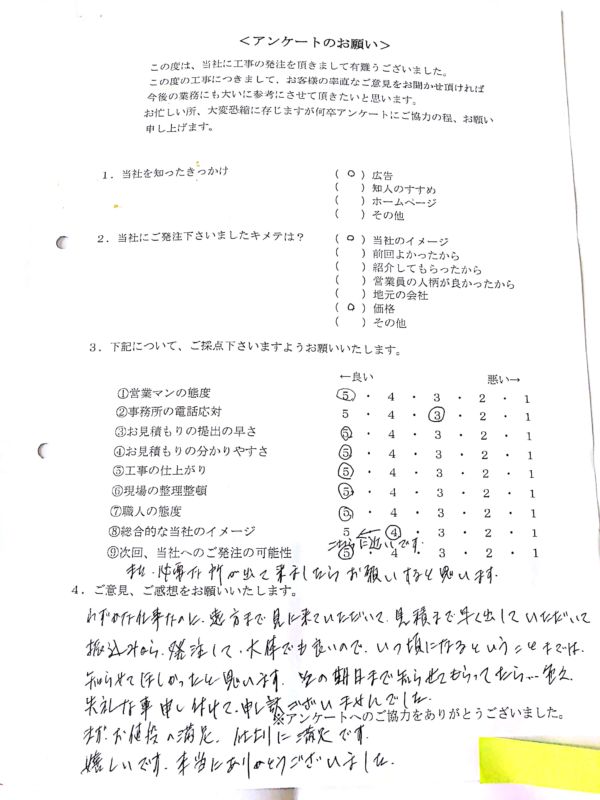 ＜アンケートのお願い＞
この度は、当社に工事の発注を頂きまして有難うございました。
この度の工事につきまして、お客様の率直なご意見をお聞かせ頂ければ
今後の業務にも大いに参考にさせて頂きたいと思います。
お忙しい所、大変恐縮に存じますが何卒アンケートにご協力の程、お願い
申し上げます。
１．当社を知ったきっかけ
（ ○ ）広告
（　）知人のすすめ
（　）ホームページ
（　）その他
２．当社にご発注下さいましたキメテは？
（ ○ ）当社のイメージ
（　）前回よかったから
（　）紹介してもらったから
（　）営業員の人柄が良かったから
（　）地元の会社
（ ○ ）価格
（　）その他
３．下記について、ご採点下さいますようお願いいたします。
←良い　悪い→
①営業マンの態度 5・4・3・2・1
②事務所の電話応対 5・4・3・2・1
③お見積もりの提出の早さ 5・4・3・2・1
④お見積もりの分かりやすさ 5・4・3・2・1
⑤工事の仕上がり 5・4・3・2・1
⑥現場の整理整頓 5・4・3・2・1
⑦職人の態度 5・4・3・2・1
⑧総合的な当社のイメージ 5 ← 4・3・2・1
こちらに近いです。
⑨次回、当社へのご発注の可能性 5・4・3・2・1
又、必要な所が出て来ましたらお願いすると思います。
４．ご意見、ご感想をお願いいたします。
わずかな仕事なのに、遠方まで見に来ていただいて、見積まで早く出していただいて
振込みから、発注して、大体でも良いので、いつ頃になるということまでは、
知らせてほしかったと思います。の期日まで知らせてもらってたら…
失礼な事申し付けて、申し訳ございませんでした。
※アンケートへのご協力をありがとうございました。
お値段の満足、仕上りに満足です。
嬉しいです。本当にありがとうございました。